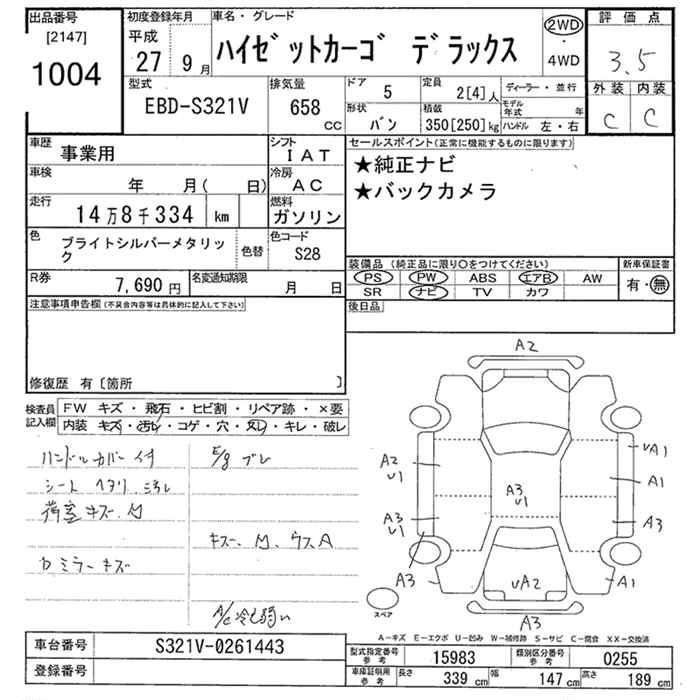 出品番号
[2147]
1004
初度登録年月
平成
27 9月
車名・グレード
ハイゼットカーゴ デラックス
2WD
・
4WD
評価点
3.5
外装 内装
C C
型式
EBD-S321V
排気量
658
CC
ドア
5
定員
2[4]人
ディーラー・並行
モデル年式 年
形状
バン
積載
350[250]kg
ハンドル 左・右
車歴 事業用
シフト
IAT
車検
年 月( 日)
冷房
AC
走行
14万8千334 km
燃料
ガソリン
色
ブライトシルバーメタリック
色替
色コード
S28
R券
7,690円
名変通知期限
月 日
セールスポイント(正常に機能するものに限ります)
★純正ナビ
★バックカメラ
装備品(純正品に限り○をつけてください)
PS PW ABS エアB AW
SR ナビ TV カワ
新車保証書
有・無
後日品
注意事項申告欄(不具合内容等は具体的に記入して下さい)
修復歴 有〔箇所 〕
検査員記入欄
FW キズ・飛石・ヒビ割・リペア跡・×要
内装 キズ・汚レ・コゲ・穴・ヌレ・キレ・破レ
ハンドルカバー付
シート ヘタリ、ヨゴレ
荷室キズ、M
カミラーキズ
E/g ブレ
キズ、M、ウスA
A/C冷え弱い
A2
A2
υ1
A3
υ1
A3
A3
υ1
υA1
A1
A3
A1
υA2
A3
スペア
A-キズ E-エクボ U-凹み W-補修跡 S-サビ C-腐食 XX-交換済
車台番号 S321V-0261443
登録番号
型式指定番号
参考
15983
類別区分番号
参考
0255
車庫証明用
参考
長さ 339 cm
幅 147 cm
高さ 189 cm